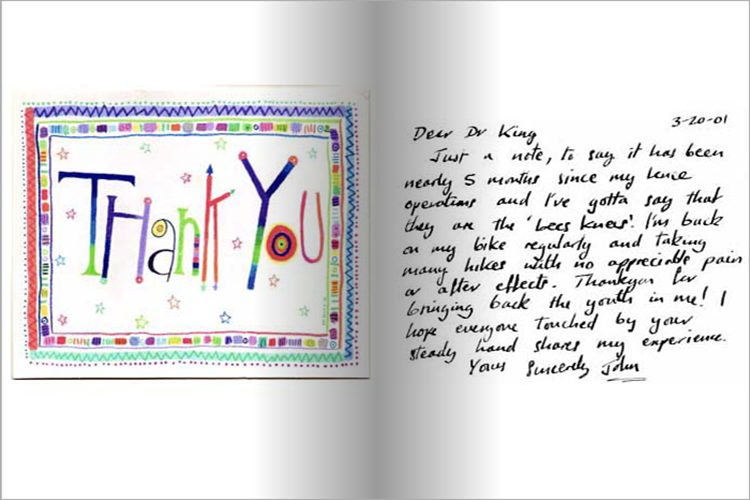 THankYou
3-20-01
Dear Dr King
Just a note, to say it has been
nearly 5 months since my knee
operations and I've gotta say that
they are the 'bees knees'. I'm back
on my bike regularly and taking
many hikes with no appreciable pain
or after effects. Thankyou for
bringing back the youth in me! I
hope everyone touched by your
steady hand shares my experience.
Yours Sincerely John